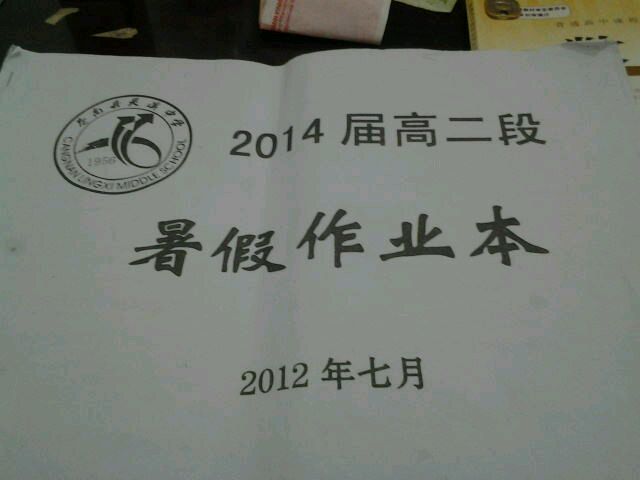 苍南县灵溪中学
1956
CANGNAN LINGXI MIDDLE SCHOOL
2014 届高二段
暑假作业本
2012 年七月